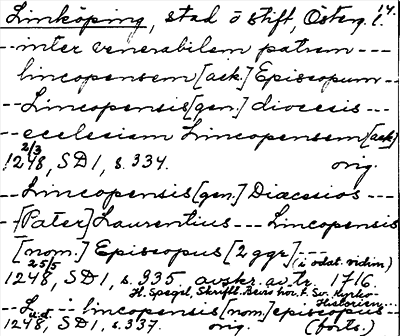 Linköping, stad o stift, Österg. l. 14.
--inter venerabilem patrem ---
lincopensem [ack.] Episcopum --
--Lincopensis [gen.] diocesis ---
--ecclesiam Lincopensem [ack]
2/3
1248, SD1, s. 334. orig.
--Lincopensis [gen.] Diœcesios ---
--[Pater] Laurentius --- Lincopensis
[nom.] Episcopus [2 ggr] ---
25/5 (i odat. vidim)
1248, SD1, s. 335. avskr. av tr. 1716.
H. Spegel, Skriftl. Bevis hör. t. Sw. Kyrkio
Historien...
--L... lincopensis [nom.] episcopus --
u.d.
1248, SD1, s. 337. orig. (forts.)